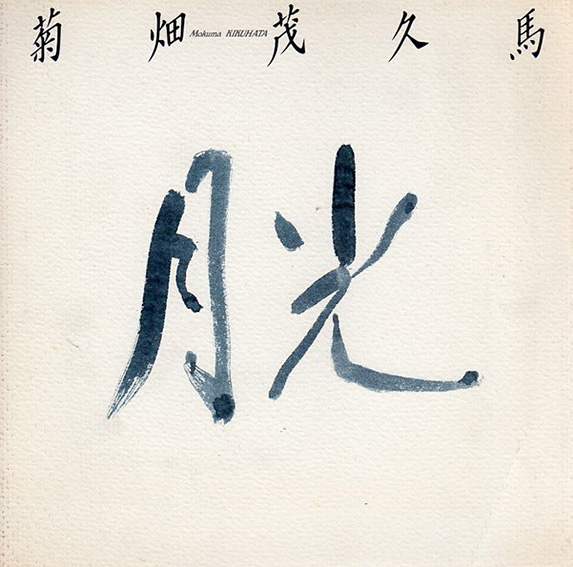 菊畑 Mokuma KIKUHATA 茂久馬
月光